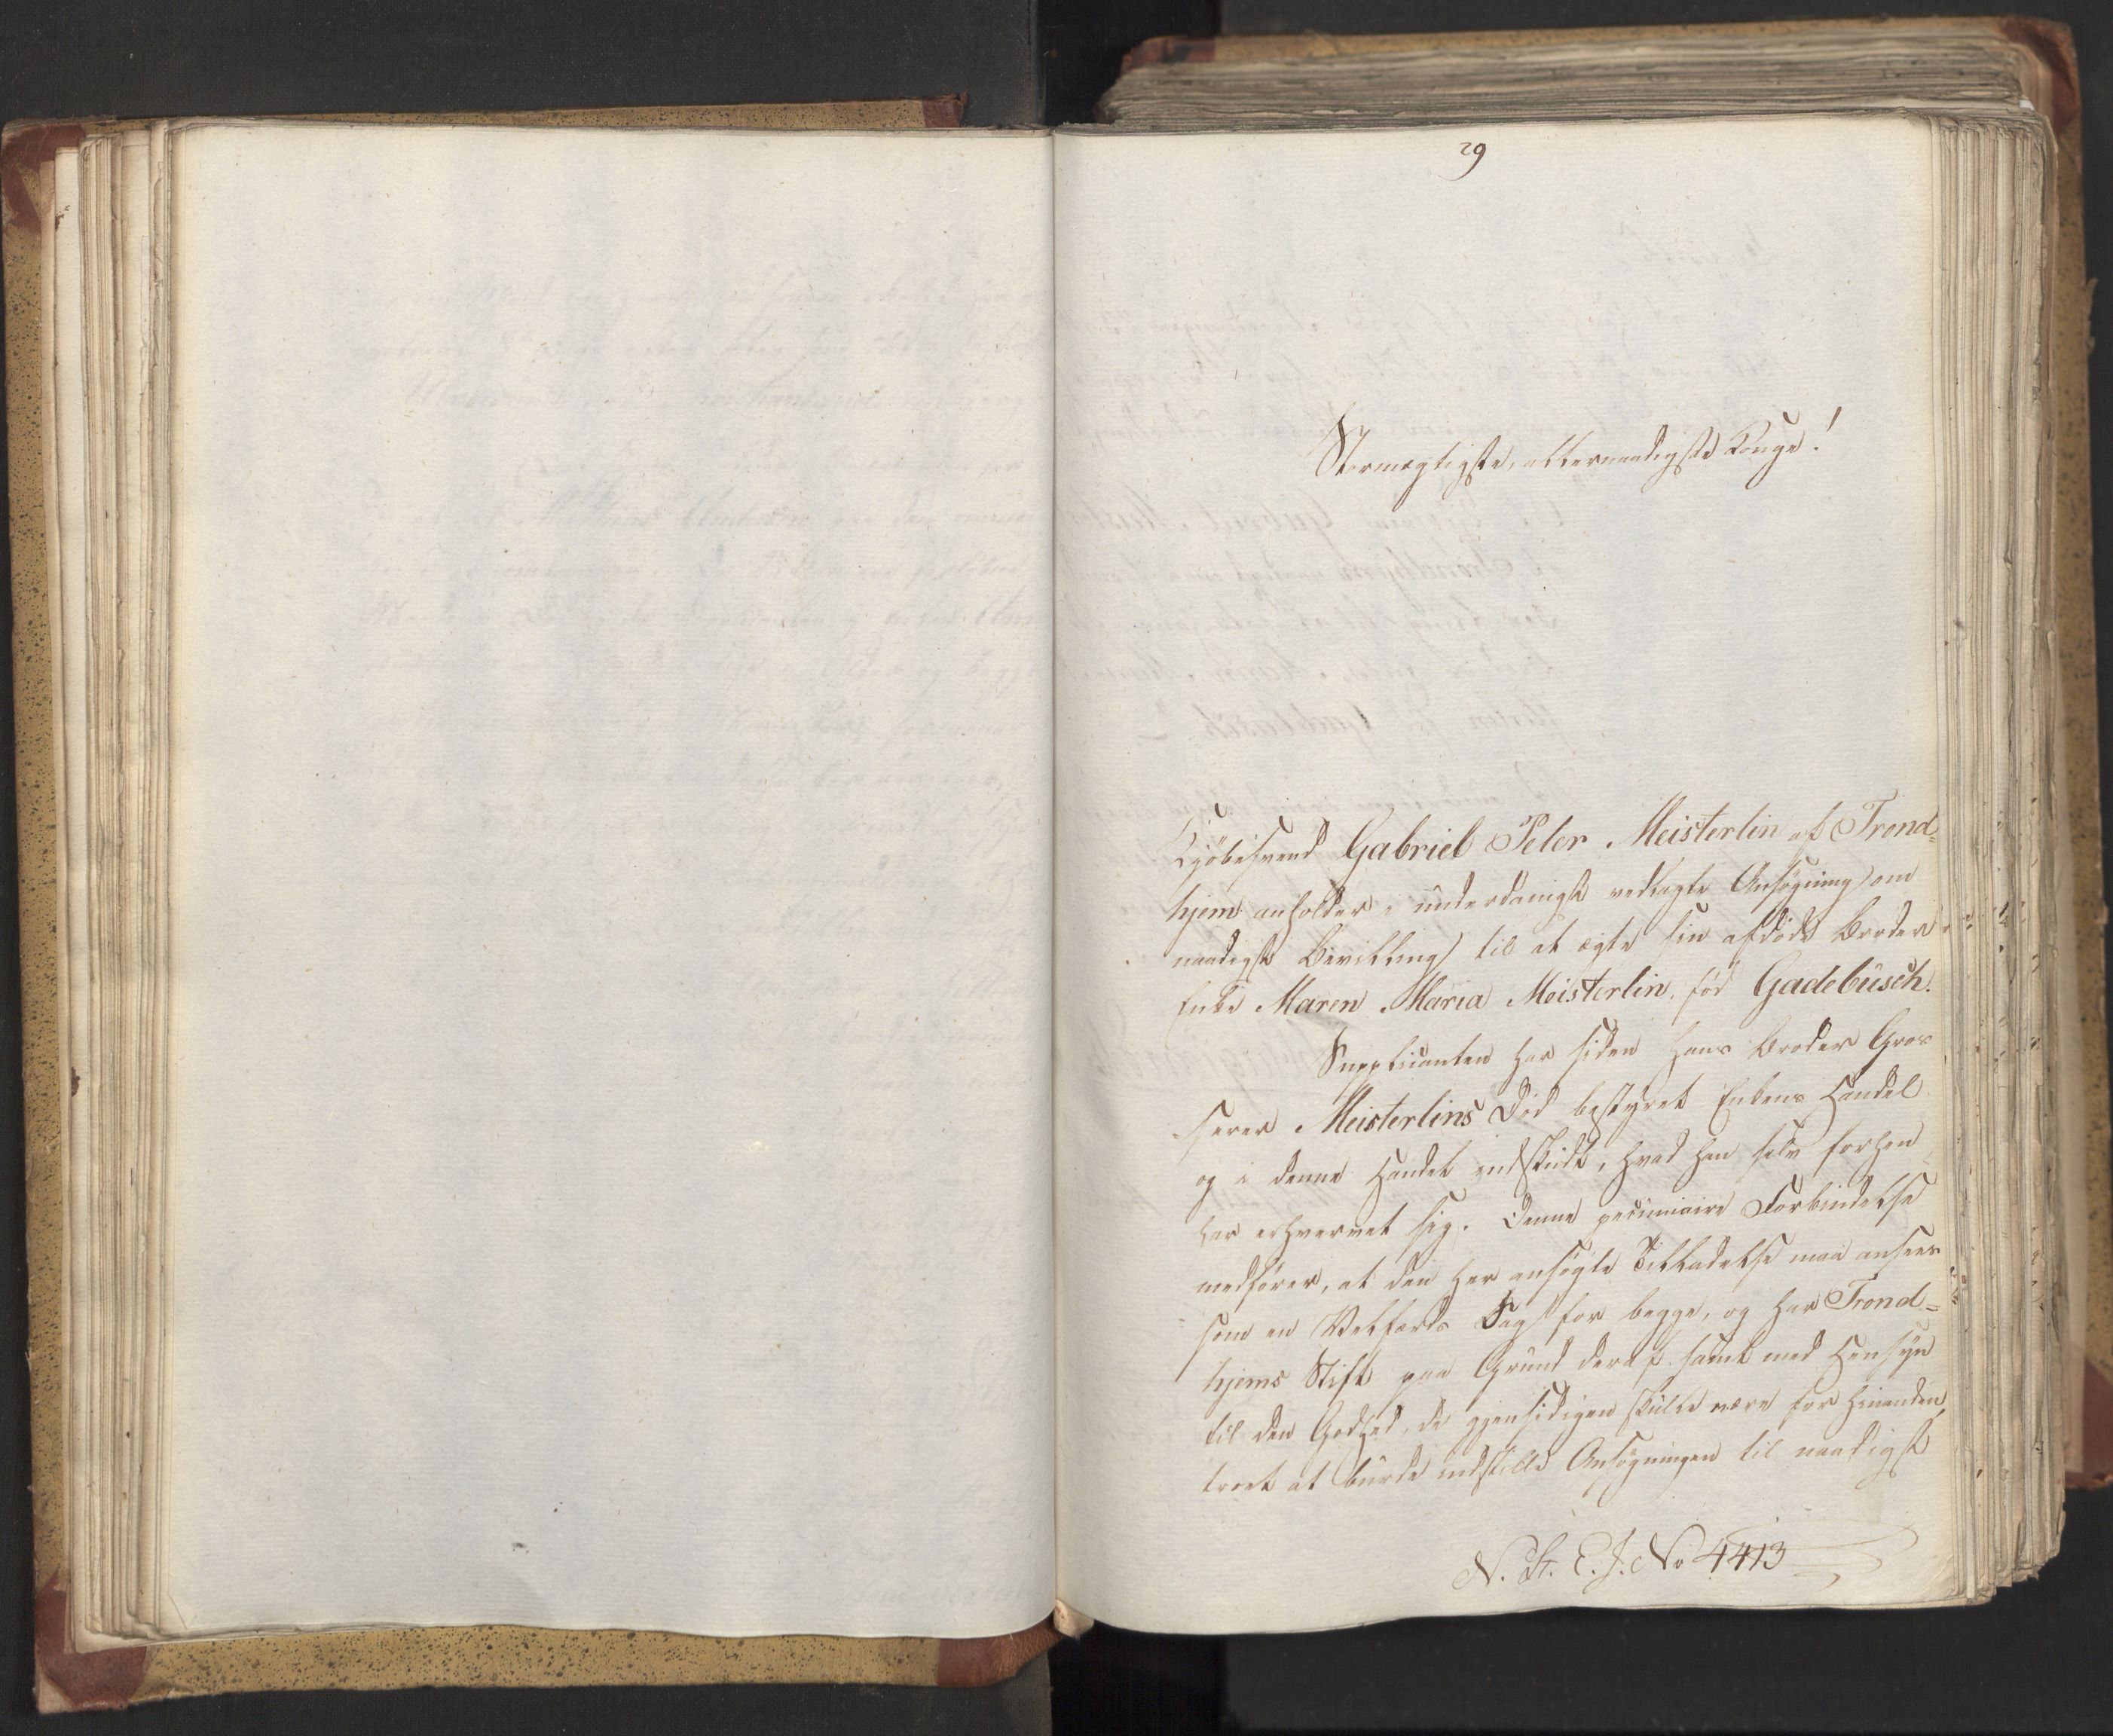 29
Stormægtigste, allernaadigste Konge!
Kjöbesvend Gabriel Peter Meisterlin af Trond-
hjem anholder i underdanigst vedlagte Ansøgning om
naadigst Bevilling til at ægte sin afdøde Broders
Enke Maren Maria Meisterlin, fød Gadebusch.
Supplicanten har siden hans Broder Gros-
serer Meisterlins Død bestyret Enkens Handel
og i denne Handel indskudt, hvad han selv forhen
har erhvervet sig. Denne pecuniaire Forbindelse
medfører, at den her ansøgte Tilladelse maa ansees
som en Velfærds Sag for begge, og har Trond-
hjems Stift paa Grund deraf samt med Hensyn
til den Godhed, de gjensidigen skulle nære for hinanden,
troet at burde indstille Ansøgningen til naadigst
N. St. E. J. No 4413